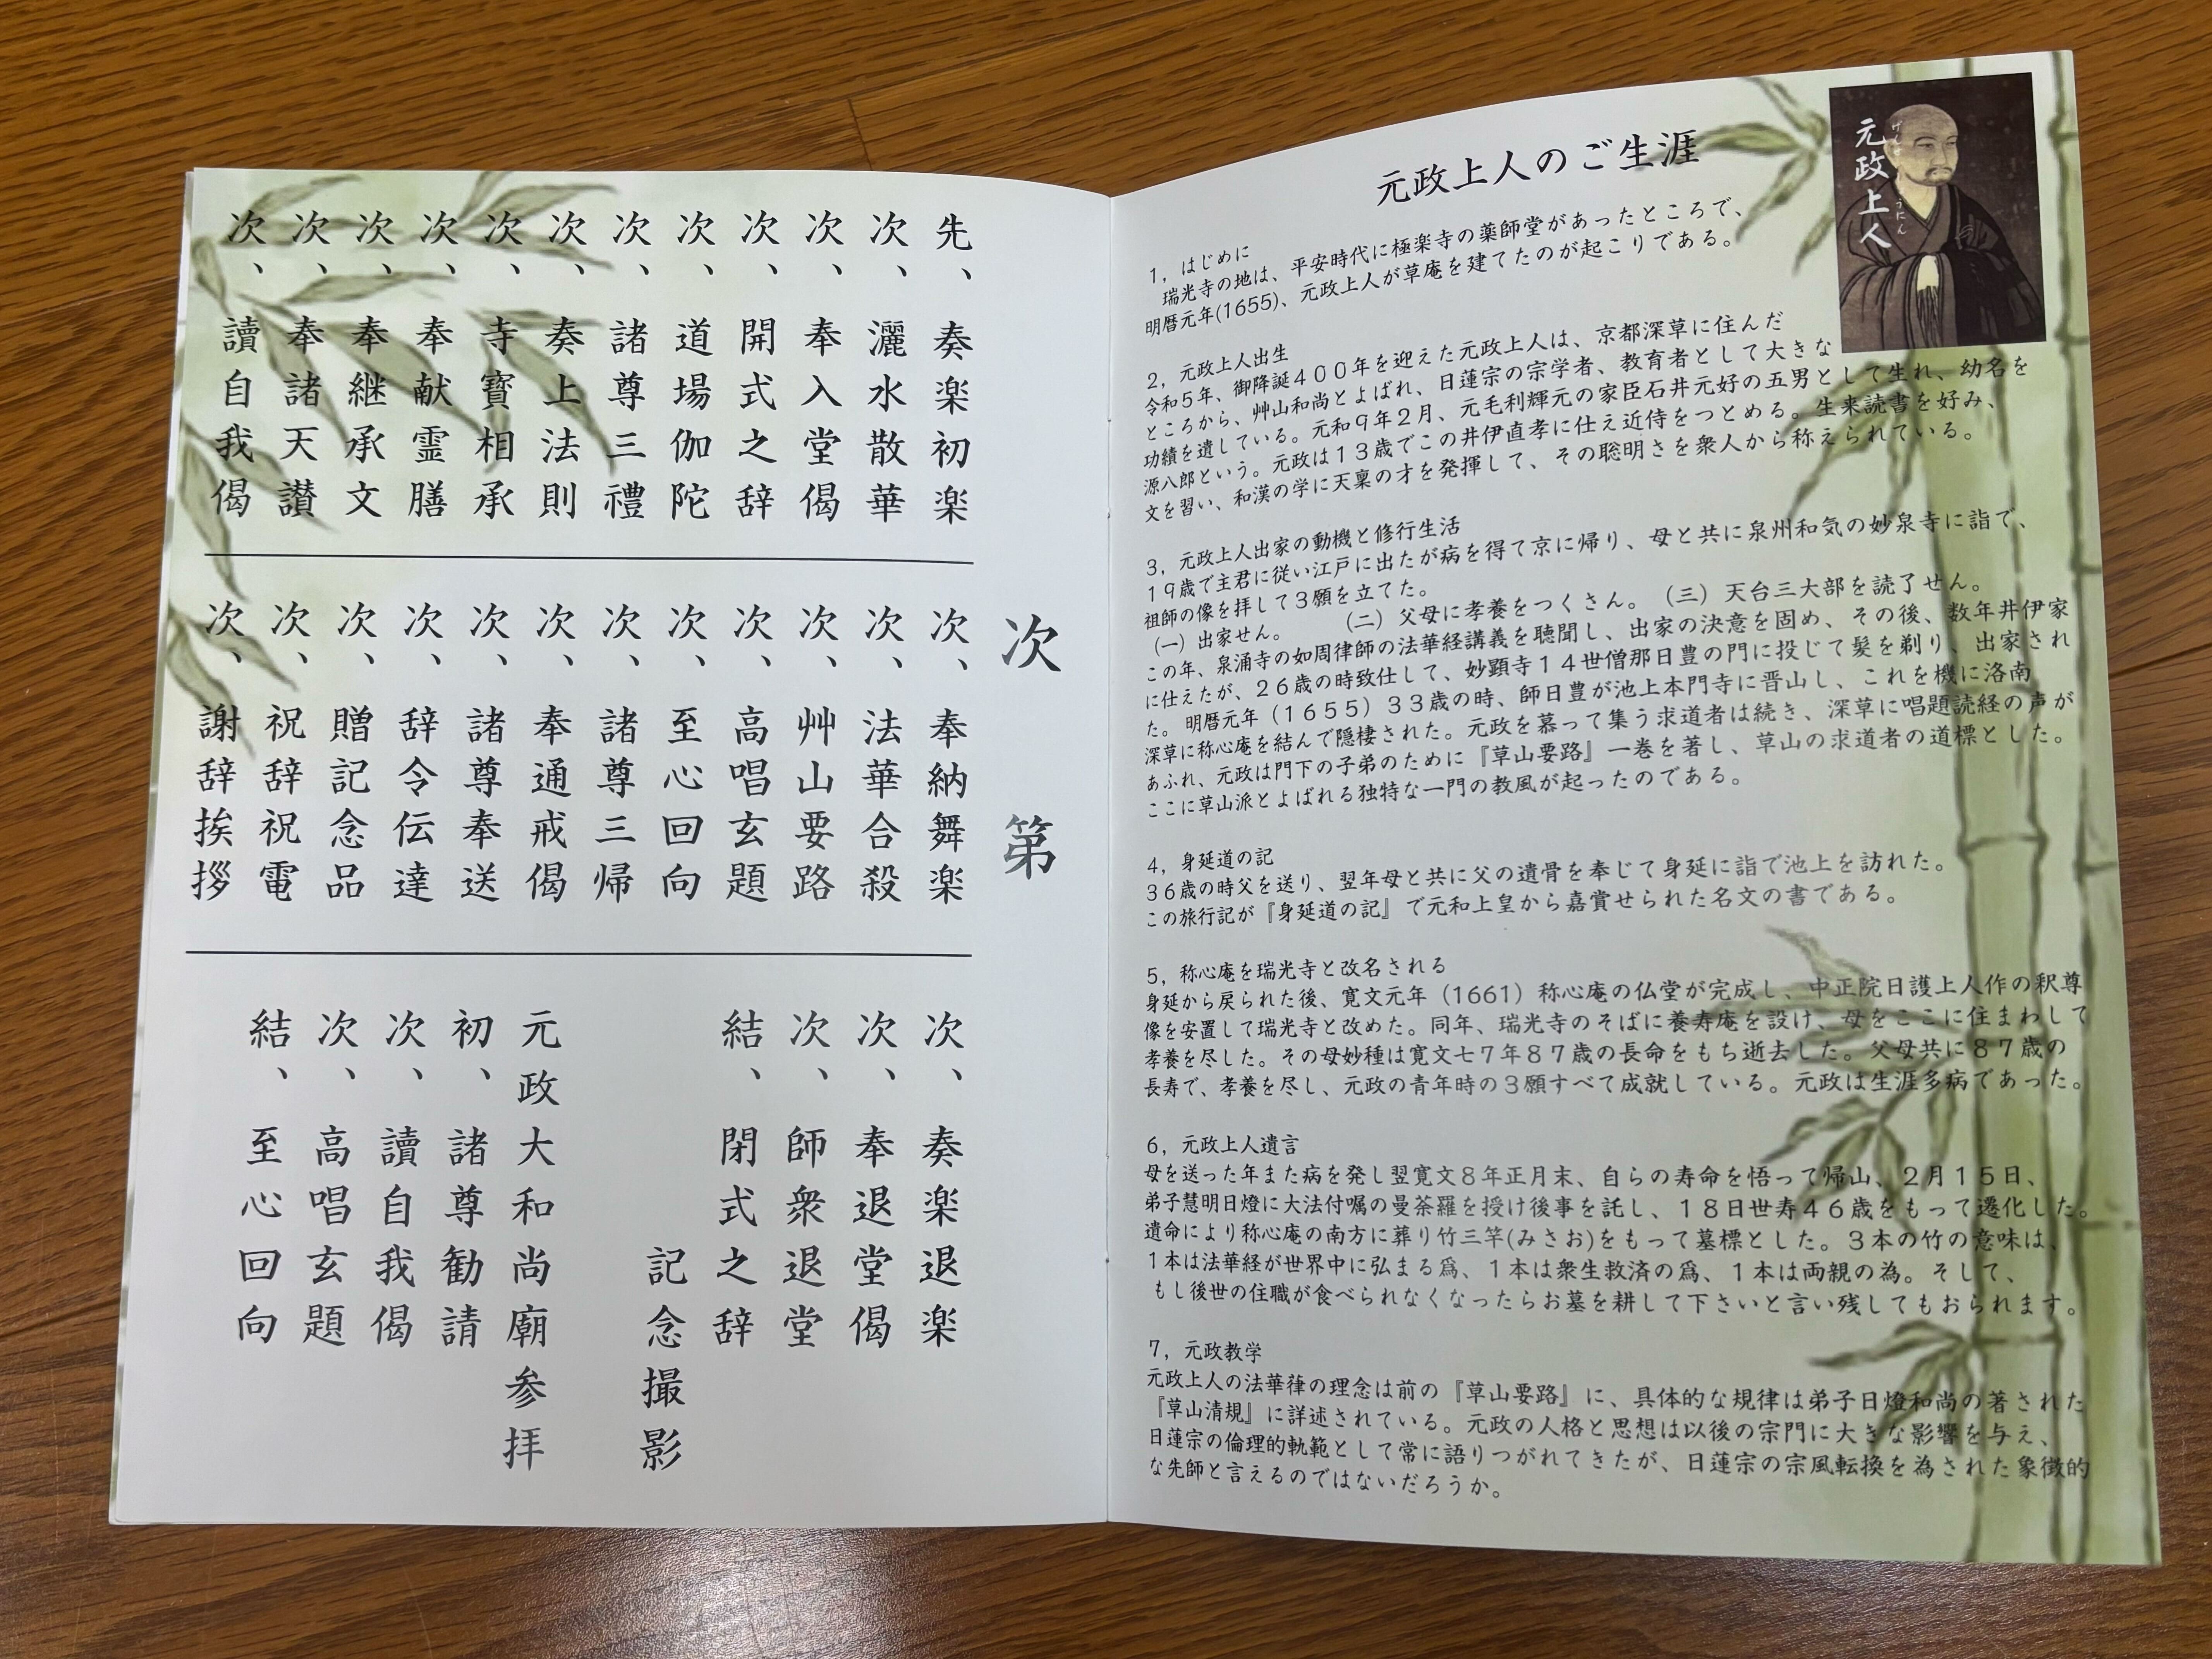 次第
先、奏楽初楽
次、灑水散華
次、奉入堂偈
次、開式之辞
次、道場伽陀
次、諸尊三禮
次、奏上法則
次、寺寶相承
次、奉献霊膳
次、奉継承文
次、奉諸天讃
次、讀自我偈
次、奉納舞楽
次、法華合殺
次、艸山要路
次、高唱玄題
次、至心回向
次、諸尊三帰
次、奉通戒偈
次、諸尊奉送
次、辞令伝達
次、贈記念品
次、祝辞祝電
次、謝辞挨拶
次、奏楽退楽
次、奉退堂偈
次、師衆退堂
結、閉式之辞
記念撮影
元政大和尚廟参拝
初、諸尊勧請
次、讀自我偈
次、高唱玄題
結、至心回向
元政上人のご生涯
元政上人
1，はじめに
瑞光寺の地は、平安時代に極楽寺の薬師堂があったところで、
明暦元年(1655)、元政上人が草庵を建てたのが起こりである。
2，元政上人出生
令和5年、御降誕４００年を迎えた元政上人は、京都深草に住んだ
ところから、艸山和尚とよばれ、日蓮宗の宗学者、教育者として大きな
功績を遺している。元和９年２月、元毛利輝元の家臣石井元好の五男として生れ、幼名を
源八郎という。元政は１３歳でこの井伊直孝に仕え近侍をつとめる。生来読書を好み、
文を習い、和漢の学に天稟の才を発揮して、その聡明さを衆人から称えられている。
3，元政上人出家の動機と修行生活
１９歳で主君に従い江戸に出たが病を得て京に帰り、母と共に泉州和気の妙泉寺に詣で、
祖師の像を拝して３願を立てた。
（一）出家せん。　（二）父母に孝養をつくさん。（三）天台三大部を読了せん。
この年、泉涌寺の如周律師の法華経講義を聴聞し、出家の決意を固め、その後、数年井伊家
に仕えたが、２６歳の時致仕して、妙顕寺１４世僧那日豊の門に投じて髪を剃り、出家され
た。明暦元年（１６５５）３３歳の時、師日豊が池上本門寺に晋山し、これを機に洛南
深草に称心庵を結んで隠棲された。元政を慕って集う求道者は続き、深草に唱題読経の声が
あふれ、元政は門下の子弟のために『草山要路』一巻を著し、草山の求道者の道標とした。
ここに草山派とよばれる独特な一門の教風が起ったのである。
4，身延道の記
３６歳の時父を送り、翌年母と共に父の遺骨を奉じて身延に詣で池上を訪れた。
この旅行記が『身延道の記』で元和上皇から嘉賞せられた名文の書である。
5，称心庵を瑞光寺と改名される
身延から戻られた後、寛文元年（1661）称心庵の仏堂が完成し、中正院日護上人作の釈尊
像を安置して瑞光寺と改めた。同年、瑞光寺のそばに養寿庵を設け、母をここに住まわして
孝養を尽した。その母妙種は寛文七７年８７歳の長命をもち逝去した。父母共に８７歳の
長寿で、孝養を尽し、元政の青年時の３願すべて成就している。元政は生涯多病であった。
6，元政上人遺言
母を送った年また病を発し翌寛文８年正月末、自らの寿命を悟って帰山、２月１５日、
弟子慧明日燈に大法付嘱の曼荼羅を授け後事を託し、１８日世寿４６歳をもって遷化した。
遺命により称心庵の南方に葬り竹三竿(みさお)をもって墓標とした。３本の竹の意味は、
１本は法華経が世界中に弘まる爲、１本は衆生救済の爲、１本は両親の為。そして、
もし後世の住職が食べられなくなったらお墓を耕して下さいと言い残してもおられます。
7，元政教学
元政上人の法華葎の理念は前の『草山要路』に、具体的な規律は弟子日燈和尚の著された
『草山清規』に詳述されている。元政の人格と思想は以後の宗門に大きな影響を与え、
日蓮宗の倫理的軌範として常に語りつがれてきたが、日蓮宗の宗風転換を為された象徴的
な先師と言えるのではないだろうか。